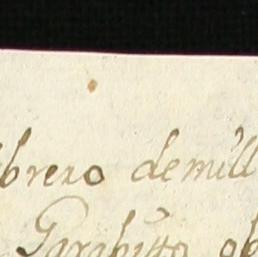 brero demill
Garabitto ob